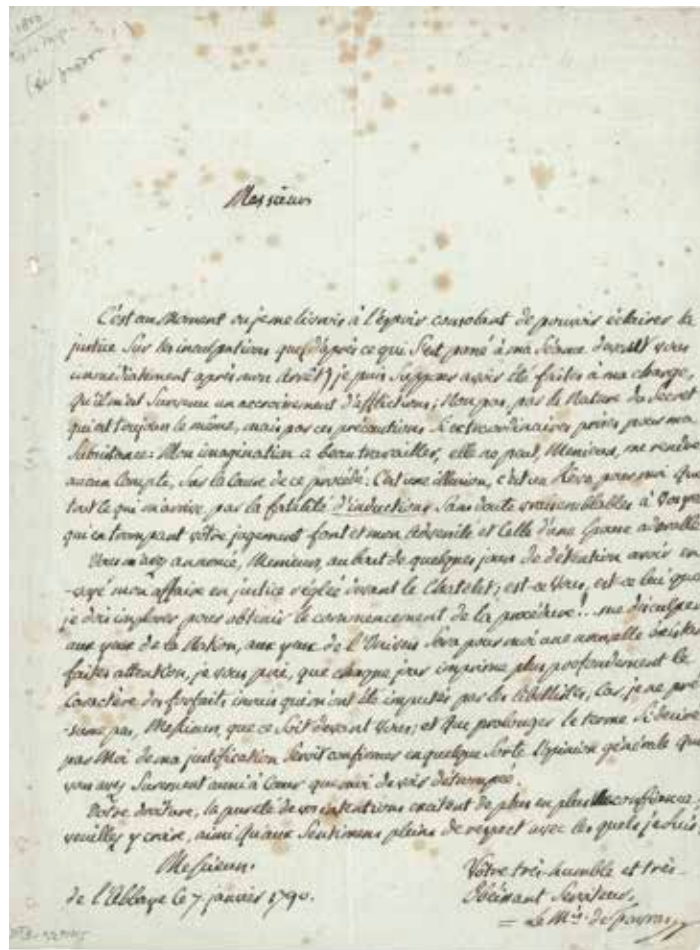 1790
(de favras)
Messieurs
C'est au Moment ou je me livrois à l'espoir consolant de pouvoir éclairer la
justice Sur les inculpations que (d'après ce qui s'est passé à ma Séance devant vous
immediatement après mon Arrêt) je puis Supposer avoir été faites à ma charge,
qu'il m'est Survenu un accroissement d'afflictions; Non pas, par la Nature du Secret
qui est toujours le même, mais par ces précautions Si extraordinaires prises pour ma
Subsistance: Mon imagination a beau travailler, elle ne peut, Messieurs, me rendre
aucun Compte, Sur la Cause de ce procédé. C'est une illusion, c'est un Rêve pour moi que
tout ce qui m'arrive, par la fatalité d'inductions Sans doute vraisemblables à Vos yeux
qui en trompant vôtre jugement font et mon Adversité et Celle d'une femme adorable
Vous m'avez annoncé, Messieurs, au bout de quelques jours de détention avoir en
-voyé mon affaire en justice réglée devant le Chatelet; est-ce Vous, est-ce lui que
je dois implorer pour obtenir le commencement de la procédure!.. me disculper
aux yeux de la Nation, aux yeux de l'Univers Sera pour moi une nouvelle existence
faites attention, je vous prie, que chaque jour imprime plus profondement le
Caractère des forfaits inouis qui m'ont été imputés par les libellistes, Car, je ne pré
-sume pas, Messieurs, que ce Soit devant Vous; et que prolonger le terme Si désiré
par Moi de ma justification Seroit confirmer en quelque Sorte l'opinion générale que
vous avez Surement aussi à Cœur que moi de voir détrompée.
Vôtre droiture, la pureté de vos intentions excitent de plus en plus ma confiance,
veuilles y croire, ainsi qu'aux Sentimens pleins de respect avec les quels je Suis,
Messieurs.
Vôtre très-humble et très-
Obéissant Serviteur,
de l'Abbaye Ce 7 janvier 1790.
= Le Mis. de favras